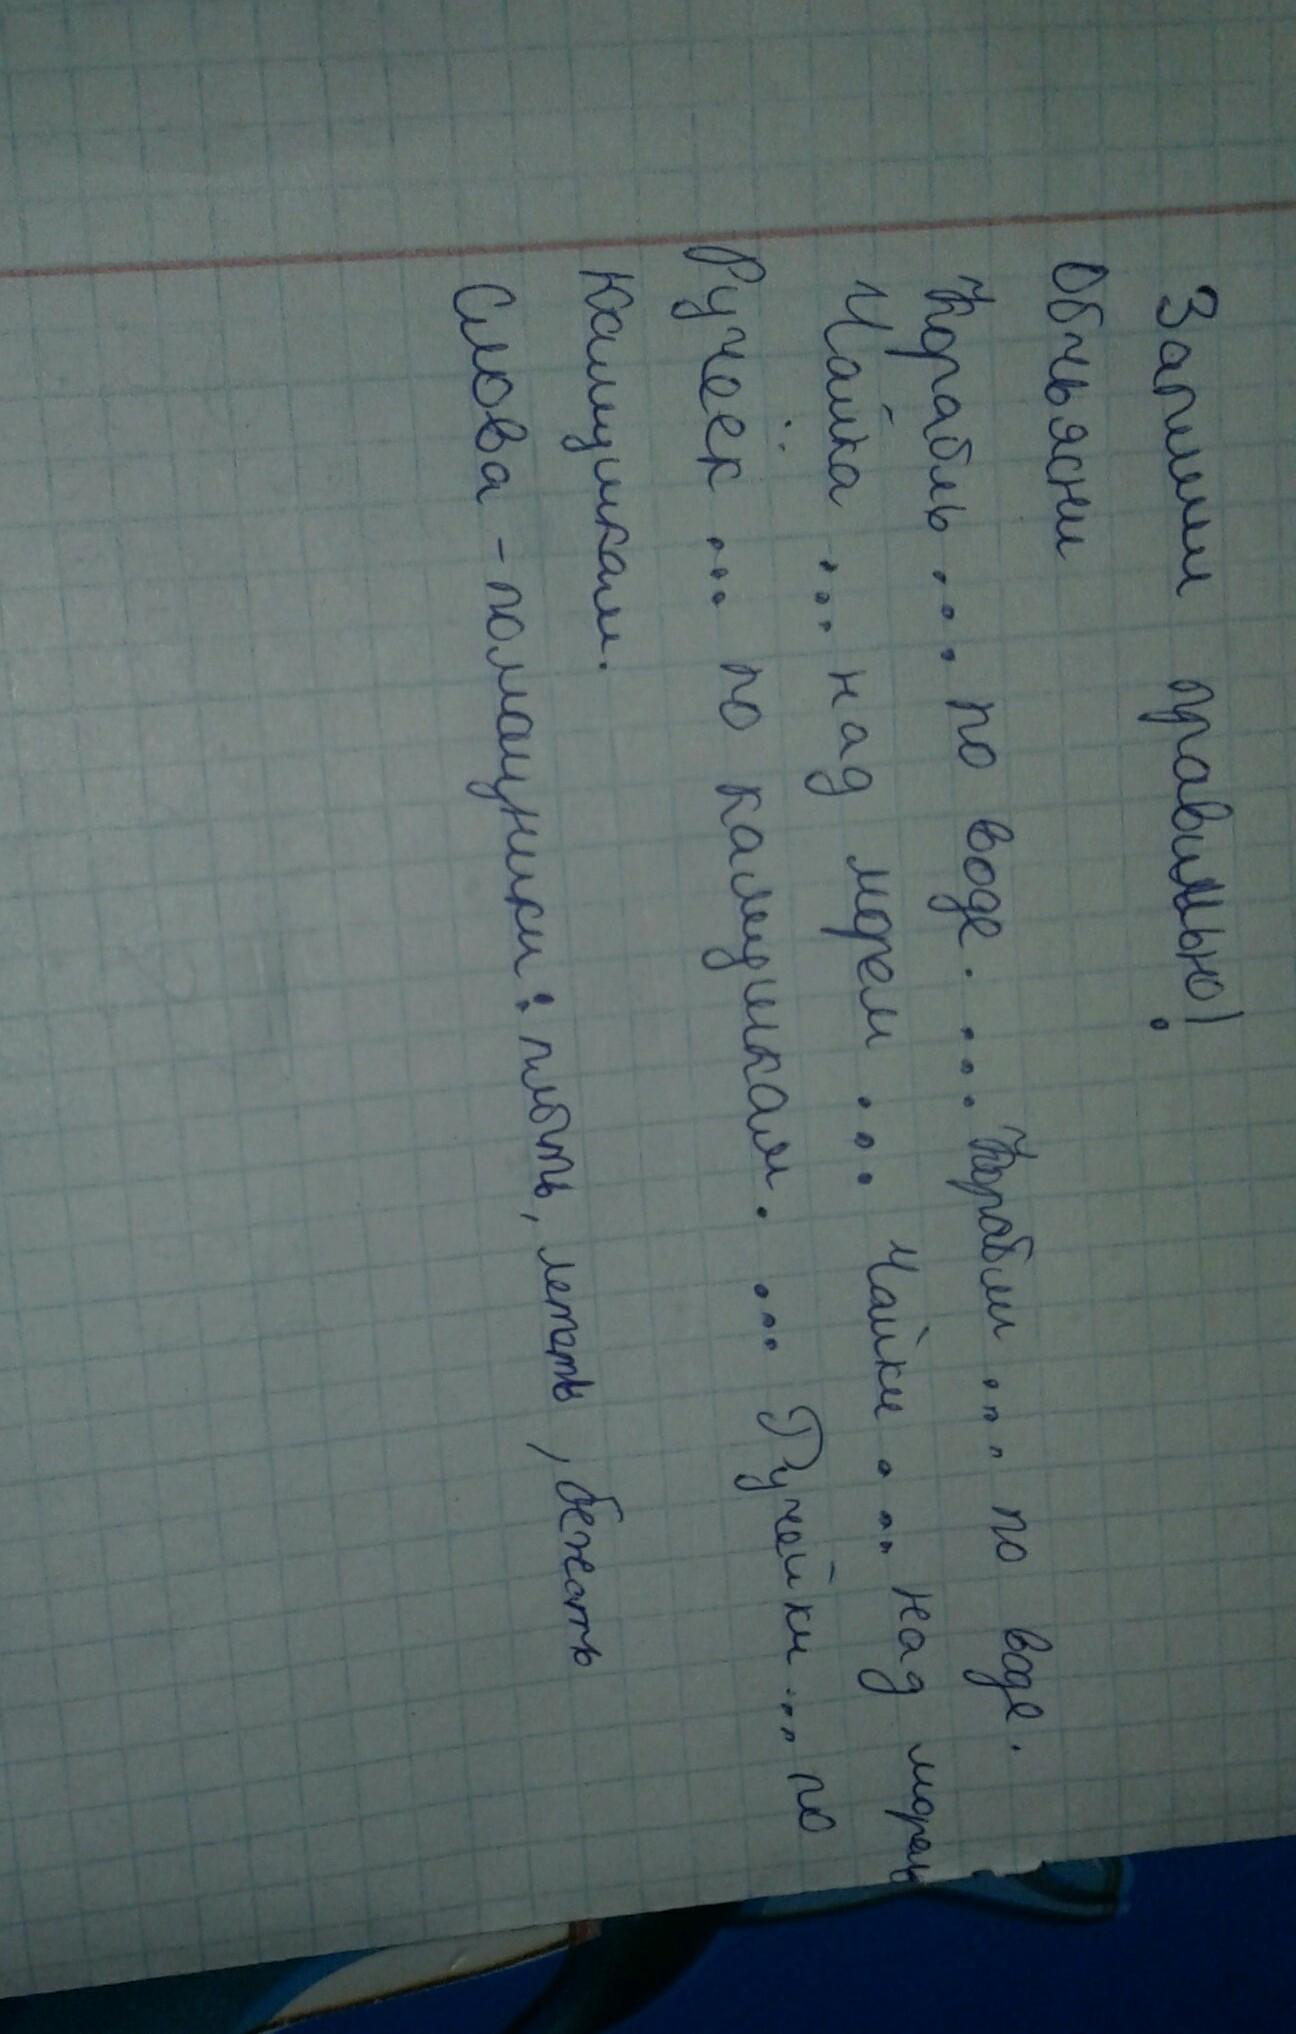 Запиши правильно!
Объясни
Корабль ... по воде. ... Корабли ... по воде.
Чайка ... над морем ... Чайки ... над морем
Ручеёк ... по камушкам. ... Ручейки ... по
камушкам.
Слова - помощники: плыть, летать, бежать